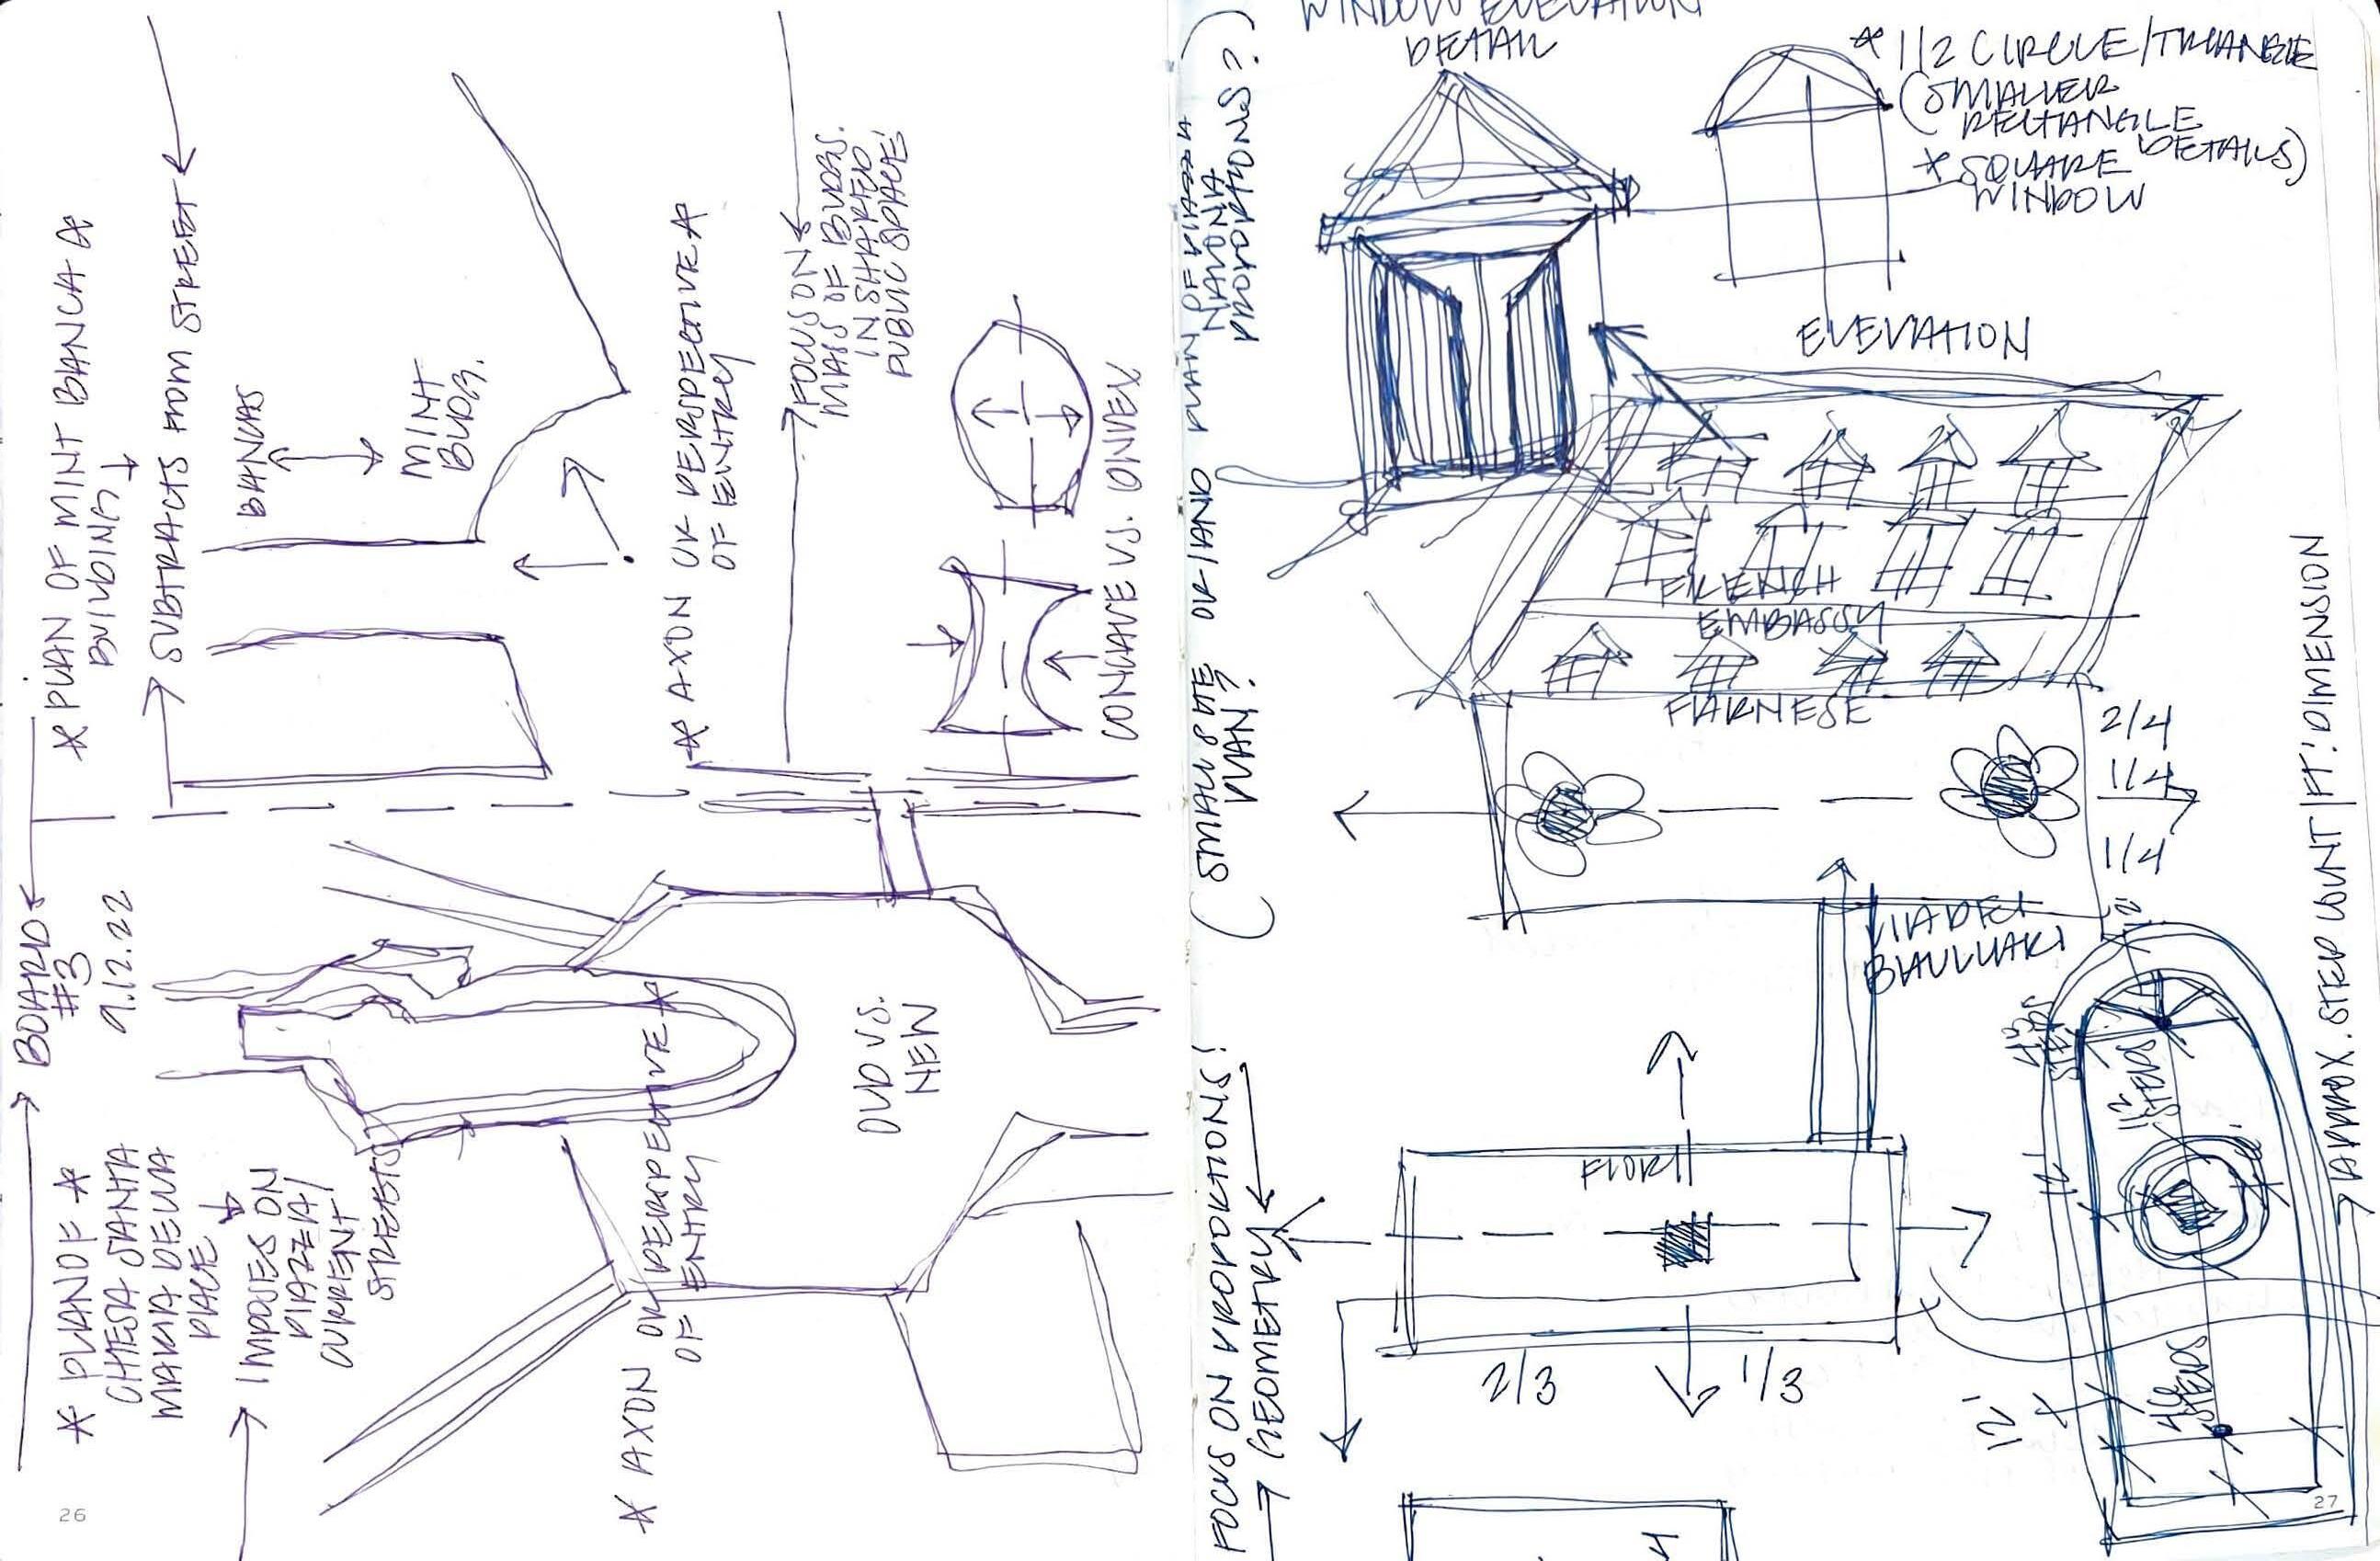 BOARD
#3
9.12.22
* PLAN OF *
CHIESA SANTA
MARIA DELLA
PACE
IMPOSES ON
PIAZZA/
CURRENT
STREETS
* AXON OR PERSPECTIVE *
OF ENTRY
OLD VS.
NEW
* PLAN OF MINT BANCA *
BUILDING
SUBTRACTS FROM STREET
BANCAS
MINT
BLDG.
* AXON OR PERSPECTIVE *
OF ENTRY
FOCUS ON
MASS OF BLDGS.
IN SHARED
PUBLIC SPACE!
CONCAVE VS. CONVEX
26
FOCUS ON PROPORTIONS!
GEOMETRY
(SMALL SITE OR/AND PLAN OF PIAZZA
PLAN?
NAVONA
PROPORTIONS?)
WINDOW ELEVATION
DETAIL
* 1/2 CIRCLE/TRIANGLE
(SMALLER
RECTANGLE
DETAILS)
* SQUARE
WINDOW
ELEVATION
FRENCH
EMBASSY
FARNESE
2/4
1/4
1/4
VIA DEI
BAULLARI
FIORI
2/3
1/3
12'
12'
12
STEPS
48
STEPS
APPROX. STEP COUNT | FT. DIMENSION
27